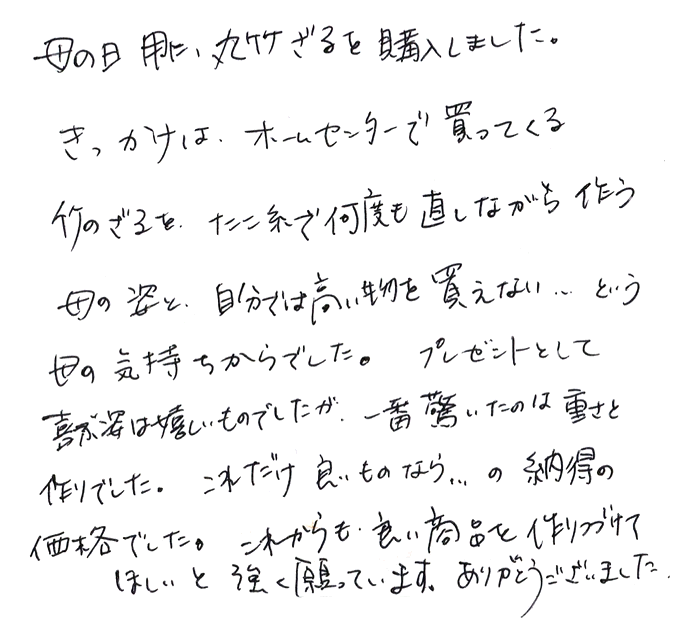 母の日用に、丸竹ざるを購入しました。
きっかけは、ホームセンターで買ってくる
竹のざるを、たこ糸で何度も直しながら作う
母の姿と、自分では高い物を買えない…という
母の気持ちからでした。 プレゼントとして
喜ぶ姿は嬉しいものでしたが、一番驚いたのは重さと
作りでした。これだけ良いものなら…の納得の
価格でした。これからも、良い商品を作りつづけて
ほしいと強く願っています。ありがとうございました。